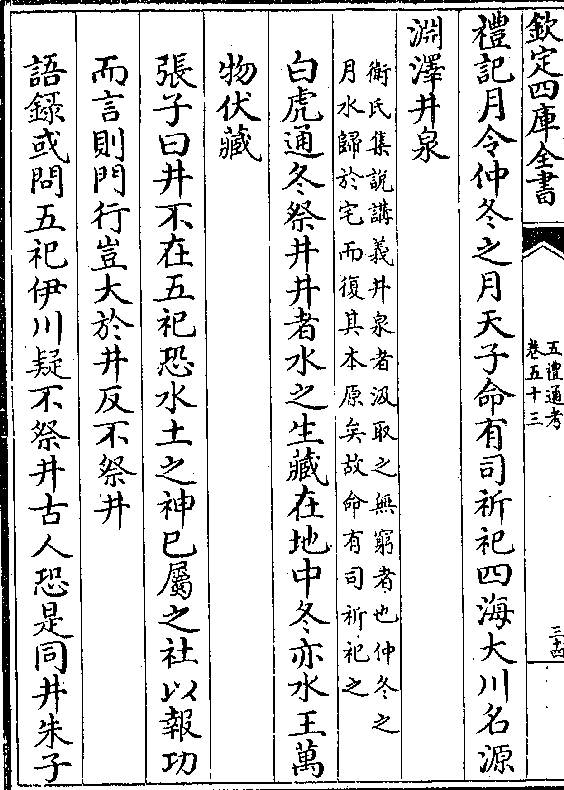 欽定四庫全書
五禮通考
卷五十三
三十四
禮記月令仲冬之月天子命有司祈祀四海大川名源
淵澤井泉
衛氏集說講義井泉者汲取之無窮者也仲冬之
月水歸於宅而復其本原矣故命有司祈祀之
白虎通冬祭井井者水之生藏在地中冬亦水王萬
物伏藏
張子曰井不在五祀恐水土之神已屬之社以報功
而言則門行豈大於井反不祭井
語録或問五祀伊川疑不祭井古人恐是同井朱子